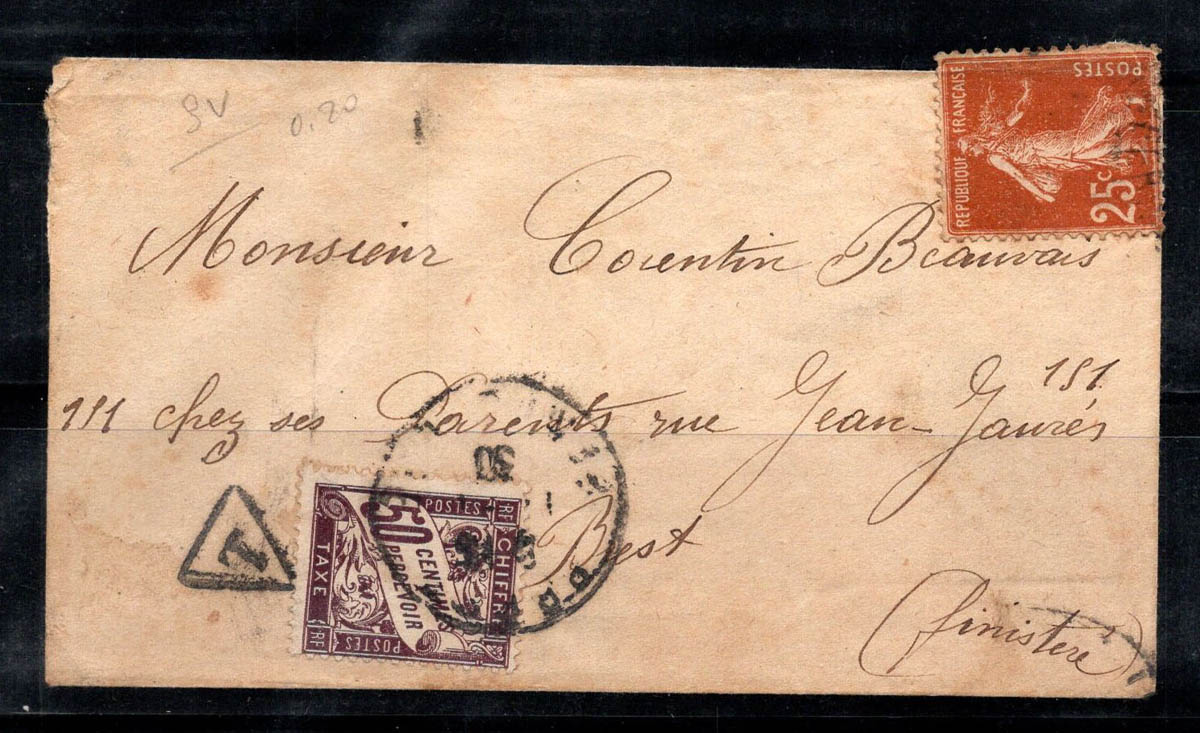 SV
0,20
REPUBLIQUE FRANCAISE
POSTES
25c
Monsieur Corentin Beauvais
181 chez ses Parents rue Jean-Jaurés 181
Brest
(finistère)
T
30
RF CHIFFRE
POSTES
50 CENTIMES
PERCEVOIR
TAXE
RF POSTES